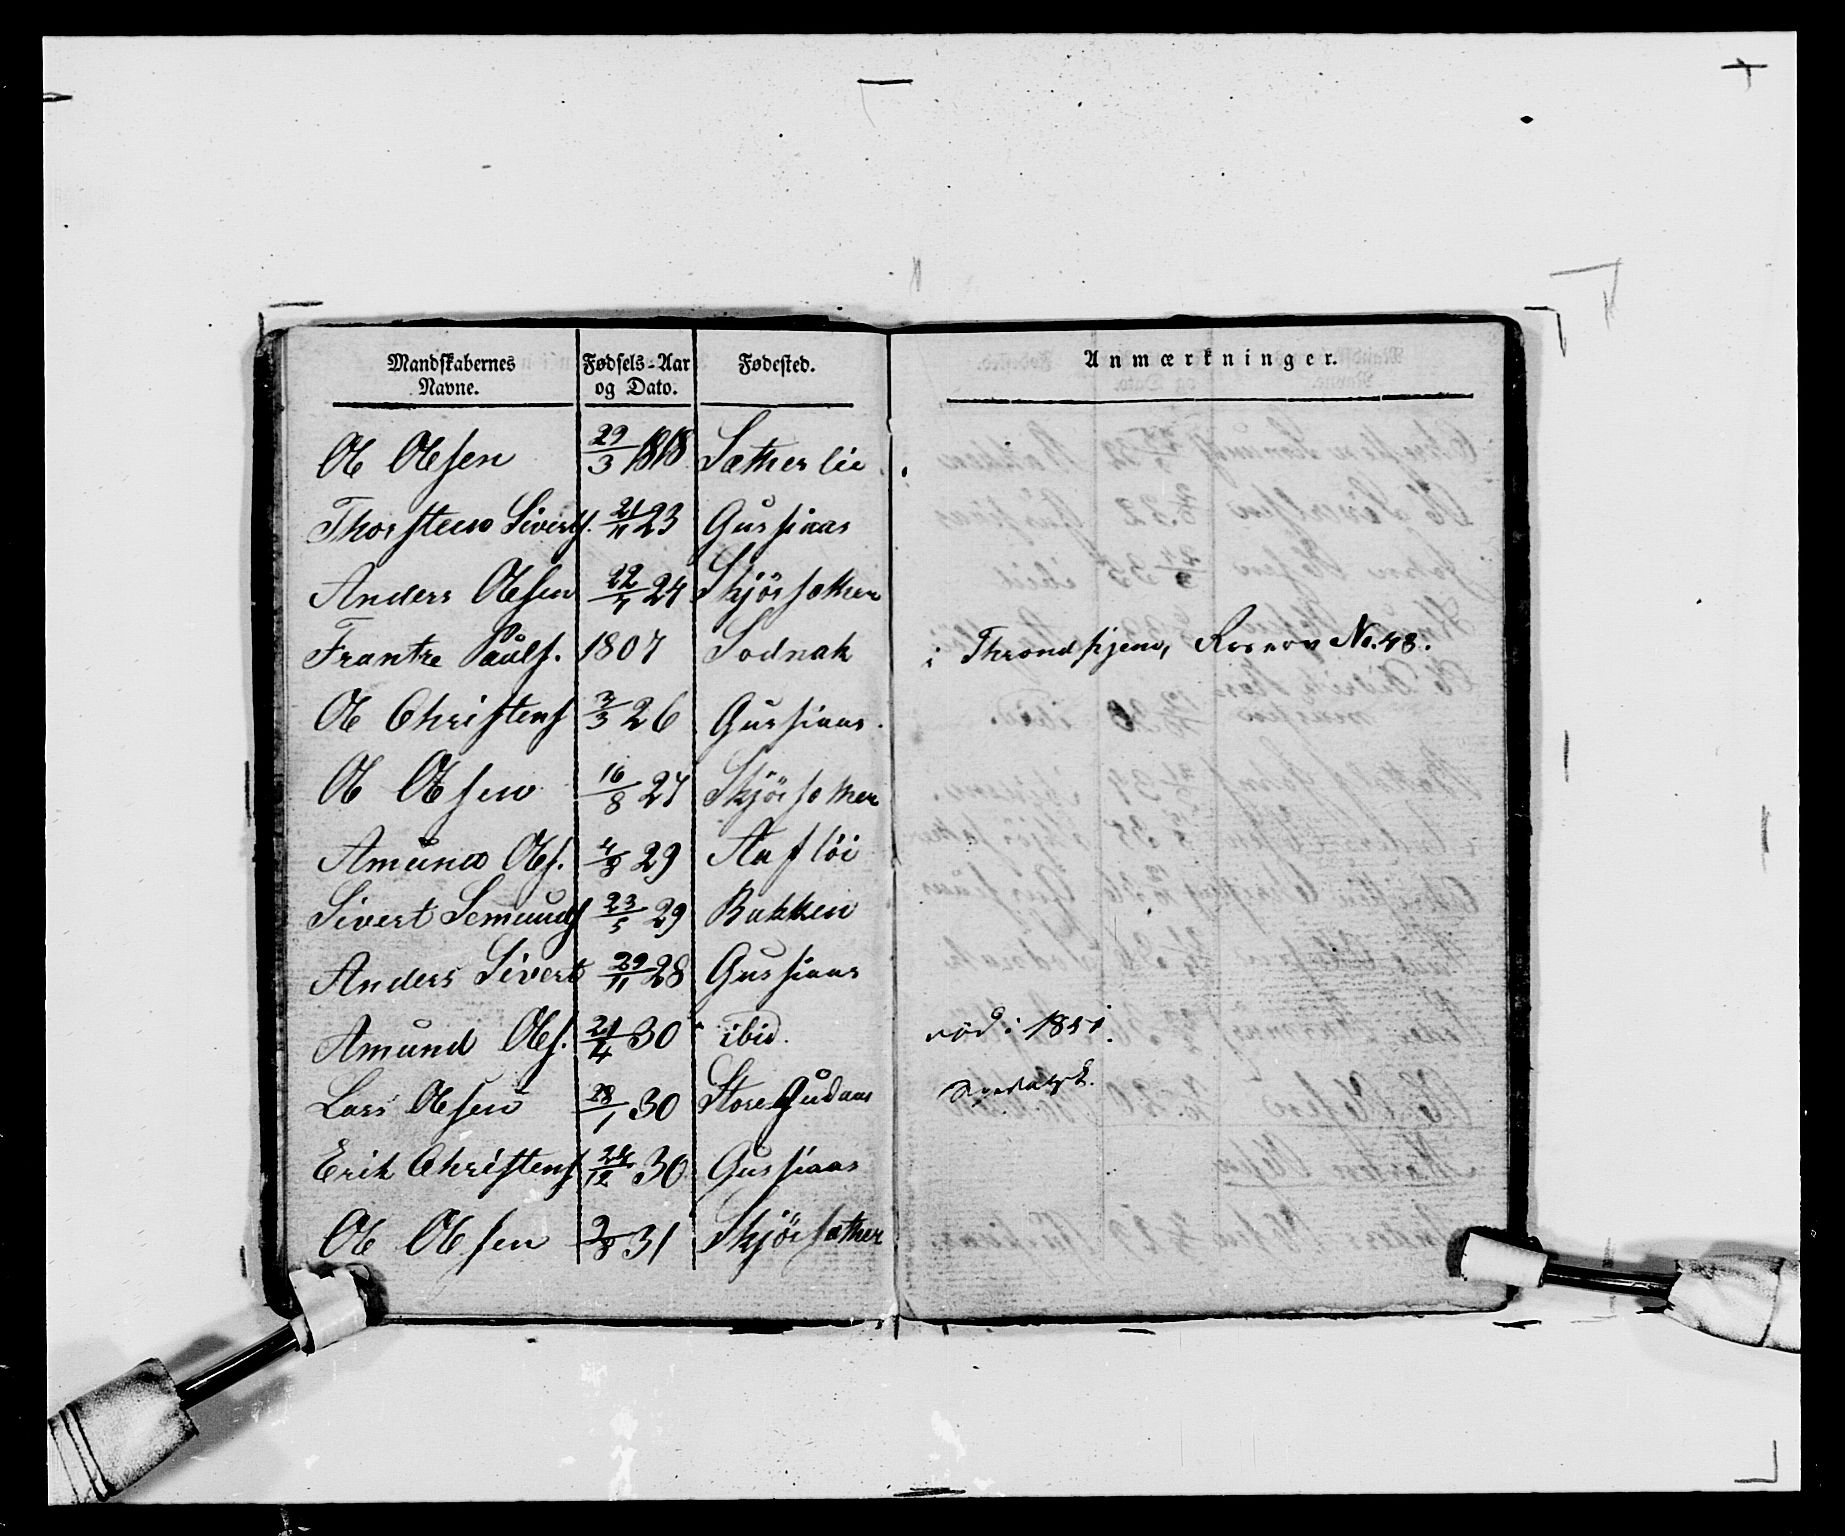 Mandskabernes Navne. Fødsels-Aar og Dato. Fødested. Anmærkninger.
Ole Olesen 29/3 1818 Sætherlie
Thorsteen Sivertſ. 21/11 23 Gusſiaas
Anders Olesen 22/5 24 Skjörsæther
Frantze Paulſ. 1807 Sodnak i Throndhjem, No. 48.
Ole Christenſ 3/3 26 Gusſiaas.
Ole Olesen 16/8 27 Skjörsæther
Amund Oleſ. 4/8 29 Aaflöi
Sivert Semundſ 23/5 29 Bakken
Anders Sivert 29/11 28 Gusſiaas
Amund Oleſ. 21/4 30 ibid. död i 1851.
Lars Olesen 28/1 30 Store Gudaas
Erik Christenſ 24/12 30 Gusſiaas
Ole Olesen 9/8 31 Skjörsæther